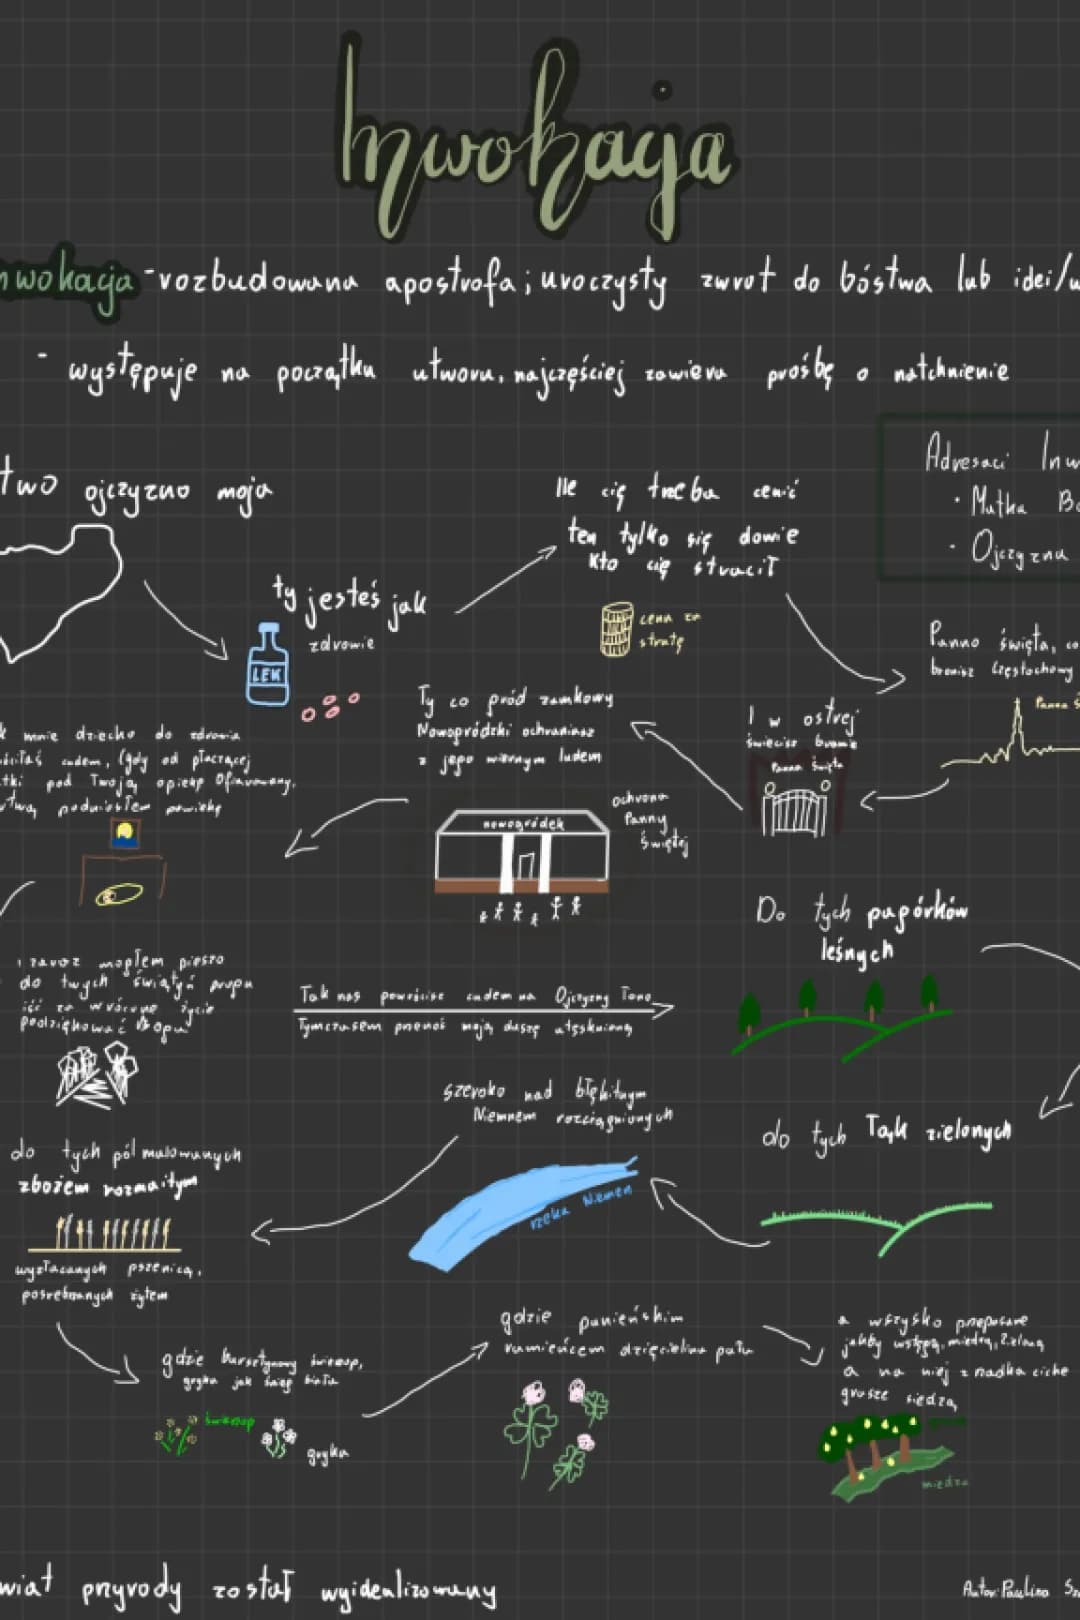 Inwokacja
nwokacja - rozbudowana apostrofa; uroczysty zwrot do bóstwa lub idei/w
- występuje na początku utworu, najczęściej zawiera prośbę o natchnienie
Adresaci Inw
· Matka Bo
· Ojczyzna
two ojczyzno moja
ty jesteś jak
zdrowie
LEK
Ile cię trzeba cenić
ten tylko się dowie
kto cię stracił
cena za
stratę
Panno święta, co
bronisz Częstochowy
Panna Ś
I w ostrej
świecisz bramie
Panna Święta
Ty co gród zamkowy
Nowogródzki ochraniasz
z jego wiernym ludem
nowogródek
ochrona
Panny
Świętej
k mnie dziecko do zdrowia
ciłaś cudem, (gdy od płaczącej
tki pod Twoją opiekę Ofiarowany,
twą podniosłem powiekę
i zaraz mogłem pieszo
do twych świątyń progu
iść za wrócone życie
podziękować Bogu
Tak nas powrócisz cudem na Ojczyzny łono
Tymczasem przenoś moją duszę utęsknioną
Do tych pagórków
leśnych
do tych łąk zielonych
szeroko nad błękitnym
Niemnem rozciągnionych
rzeka Niemen
do tych pól malowanych
zbożem rozmaitym
wyzłacanych pszenicą,
posrebrzanych żytem
gdzie bursztynowy świerzop,
gryka jak śnieg biała
świerzop
gryka
gdzie panieńskim
rumieńcem dzięcielina pała
a wszysko przepasane
jakby wstęgą, miedzą, Zieloną
a na niej z rzadka ciche
grusze siedzą
miedza
wiat przyrody został wyidealizowany
Autor: Paulina